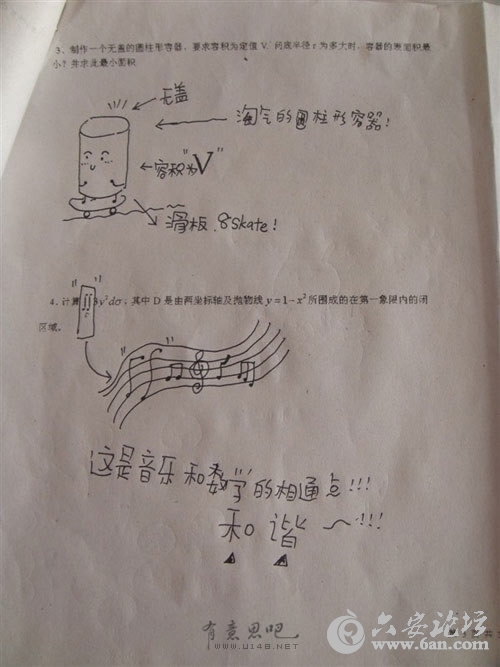 3、制作一个无盖的圆柱形容器，要求容积为定值 V，问底半径 r 为多大时，容器的表面积最
小？并求此最小面积.
无盖
淘气的圆柱形容器！
容积为"V"
滑板 Skate！
4、计算 y²dσ，其中 D 是由两坐标轴及抛物线 y=1-x² 所围成的在第一象限内的闭
区域。
这是音乐和数学的相通点!!!
和谐~!!!
有意思吧
www.u148.net
六安论坛
www.6an.com